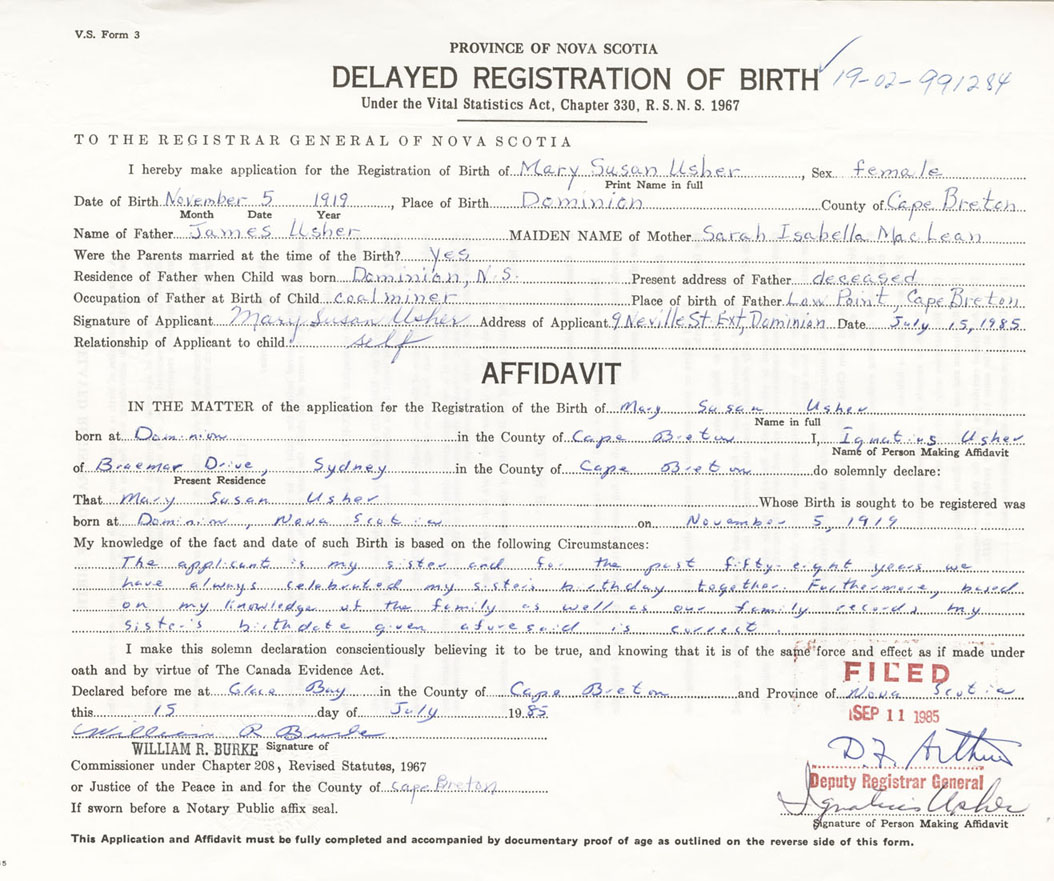 V.S. Form 3
PROVINCE OF NOVA SCOTIA
DELAYED REGISTRATION OF BIRTH 19-02-991284
Under the Vital Statistics Act, Chapter 330, R. S. N. S. 1967
TO THE REGISTRAR GENERAL OF NOVA SCOTIA
I hereby make application for the Registration of Birth of Mary Susan Usher, Sex female
Print Name in full
Date of Birth November 5 1919, Place of Birth Dominion County of Cape Breton
Month Date Year
Name of Father James Usher MAIDEN NAME of Mother Sarah Isabella MacLean
Were the Parents married at the time of the Birth? yes
Residence of Father when Child was born Dominion, N.S. Present address of Father deceased
Occupation of Father at Birth of Child coalminer Place of birth of Father Low Point, Cape Breton
Signature of Applicant Mary Susan Usher Address of Applicant 9 Neville St Ext, Dominion Date July 15, 1985
Relationship of Applicant to child self
AFFIDAVIT
IN THE MATTER of the application for the Registration of the Birth of Mary Susan Usher
Name in full
born at Dominion in the County of Cape Breton I, Ignatius Usher
Name of Person Making Affidavit
of Braemar Drive, Sydney in the County of Cape Breton do solemnly declare:
Present Residence
That Mary Susan Usher Whose Birth is sought to be registered was
born at Dominion, Nova Scotia on November 5, 1919
My knowledge of the fact and date of such Birth is based on the following Circumstances:
The applicant is my sister and for the past fifty-eight years we
have always celebrated my sister's birthday together. Furthermore, based
on my knowledge of the family as well as our family records, my
sister's birthdate given aforesaid is correct.
I make this solemn declaration conscientiously believing it to be true, and knowing that it is of the same force and effect as if made under
oath and by virtue of The Canada Evidence Act.
FILED
Declared before me at Glace Bay in the County of Cape Breton and Province of Nova Scotia
this 15 day of July 1985
SEP 11 1985
William R Burke
WILLIAM R. BURKE Signature of
D F Arthur
Commissioner under Chapter 208, Revised Statutes, 1967
Deputy Registrar General
or Justice of the Peace in and for the County of Cape Breton
Ignatius Usher
If sworn before a Notary Public affix seal.
Signature of Person Making Affidavit
This Application and Affidavit must be fully completed and accompanied by documentary proof of age as outlined on the reverse side of this form.